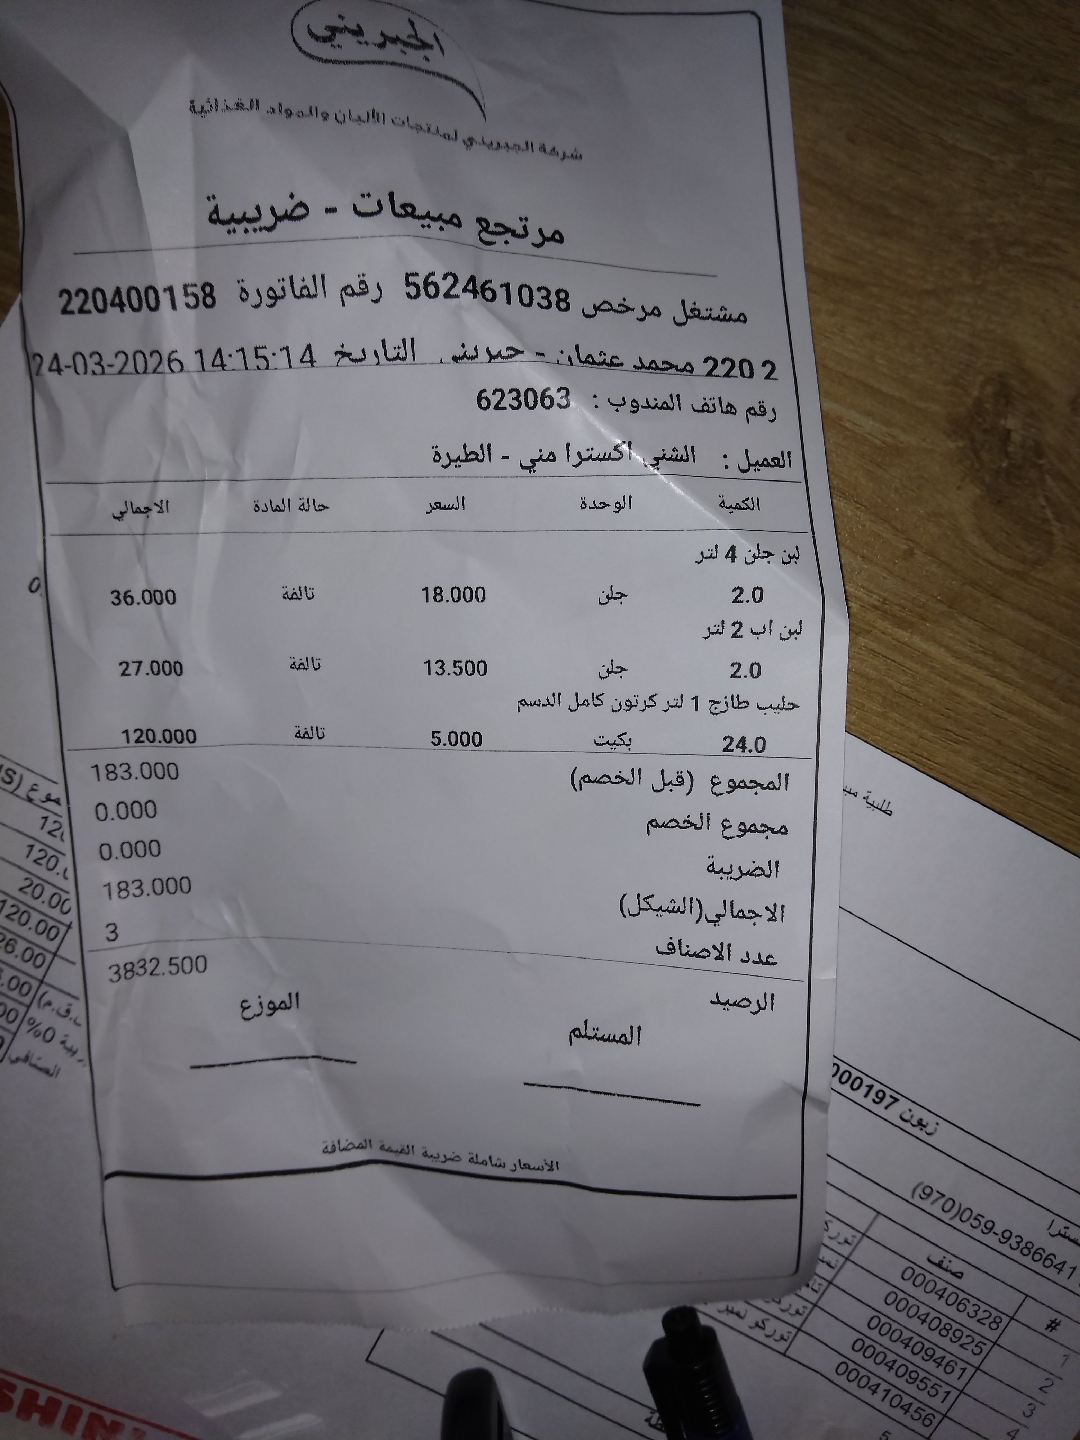 الجبريني
شركة الجبريني لمنتجات الألبان والمواد الغذائية
مرتجع مبيعات - ضريبية
مشتغل مرخص 562461038 رقم الفاتورة 220400158
2 220 محمد عثمان - جبريني التاريخ 24-03-2026 14:15:14
رقم هاتف المندوب : 623063
العميل : الشني اكسترا مني - الطيرة
الكمية الوحدة السعر حالة المادة الاجمالي
لبن جلن 4 لتر
2.0 جلن 18.000 تالفة 36.000
لبن اب 2 لتر
2.0 جلن 13.500 تالفة 27.000
حليب طازج 1 لتر كرتون كامل الدسم
24.0 بكيت 5.000 تالفة 120.000
المجموع (قبل الخصم) 183.000
مجموع الخصم 0.000
الضريبة 0.000
الاجمالي(الشيكل) 183.000
عدد الاصناف 3
الرصيد 3832.500
المستلم الموزع
الأسعار شاملة ضريبة القيمة المضافة
طلبية
زبون 000197
(970)059-9386641
# صنف
1 000406328
2 000408925
3 000409461
4 000409551
5 000410456
120.
20.00
120.00
26.00
الصافي